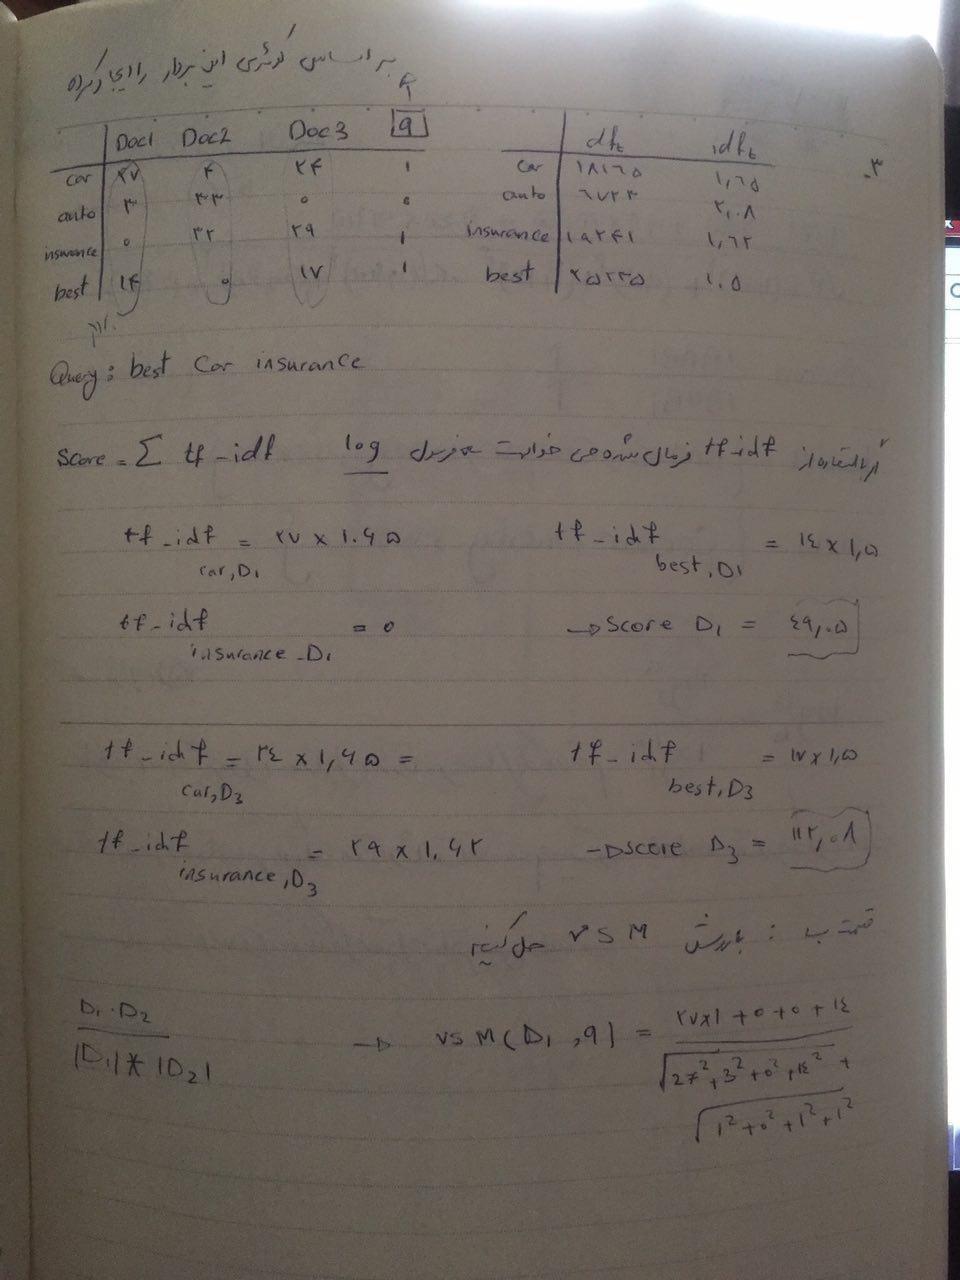 بر اساس کوئری این بردار را ایجاد کرده
Doc1 Doc2 Doc3 q
car ۲۷ ۴ ۲۴ ۱
auto ۳ ۳۳ ۰ ۰
insurance ۰ ۳۳ ۲۹ ۱
best ۱۴ ۰ ۱۷ ۱
۳-
dft idft
car ۱۸۱۶۵ ۱,۶۵
auto ۶۷۲۳ ۲,۰۸
insurance ۱۹۲۴۱ ۱,۶۲
best ۲۵۲۳۵ ۱.۵
Query: best car insurance
اگر با استفاده از tf-idf نرمال شده می خواست log Score = Σ tf-idf
tf-idf car,D1 = ۲۷ × ۱.۶۵ tf-idf best,D1 = ۱٤ × ۱,۵
tf-idf insurance-D1 = ۰ → Score D1 = ٤۹,۰۵
tf-idf car,D3 = ۲٤ × ۱,۶۵ = tf-idf best,D3 = ۱۷ × ۱,۵
tf-idf insurance,D3 = ۲۹ × ۱.۶۲ → score D3 = ۱۱۲,۰۸
قسمت ب : با روش VSM حل کنید
D1 · D2 / |D1| * |D2| → VSM(D1 ,q) = ۲۷×۱ + ۰ + ۰ + ۱٤
√27² + 3² + 0² + ۱٤² +
√1² + 0² + 1² + 1²